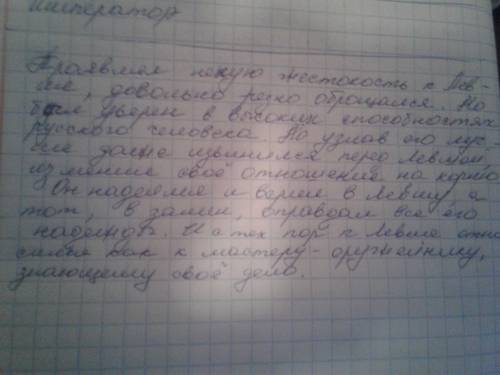 император
Проявлял некую жестокость к Лев-
ше, довольно резко обращался. Но
был уверен в высоких способностях
русского человека. Но узнав его луч-
ше даже извинился перед Левшой,
изменив своё отношение на корню
Он надеялся и верил в Левшу, а
тот, в замен, оправдал все его
надежды. И с тех пор к Левше отно
сился как к мастеру-оружейнику,
знающему своё дело.